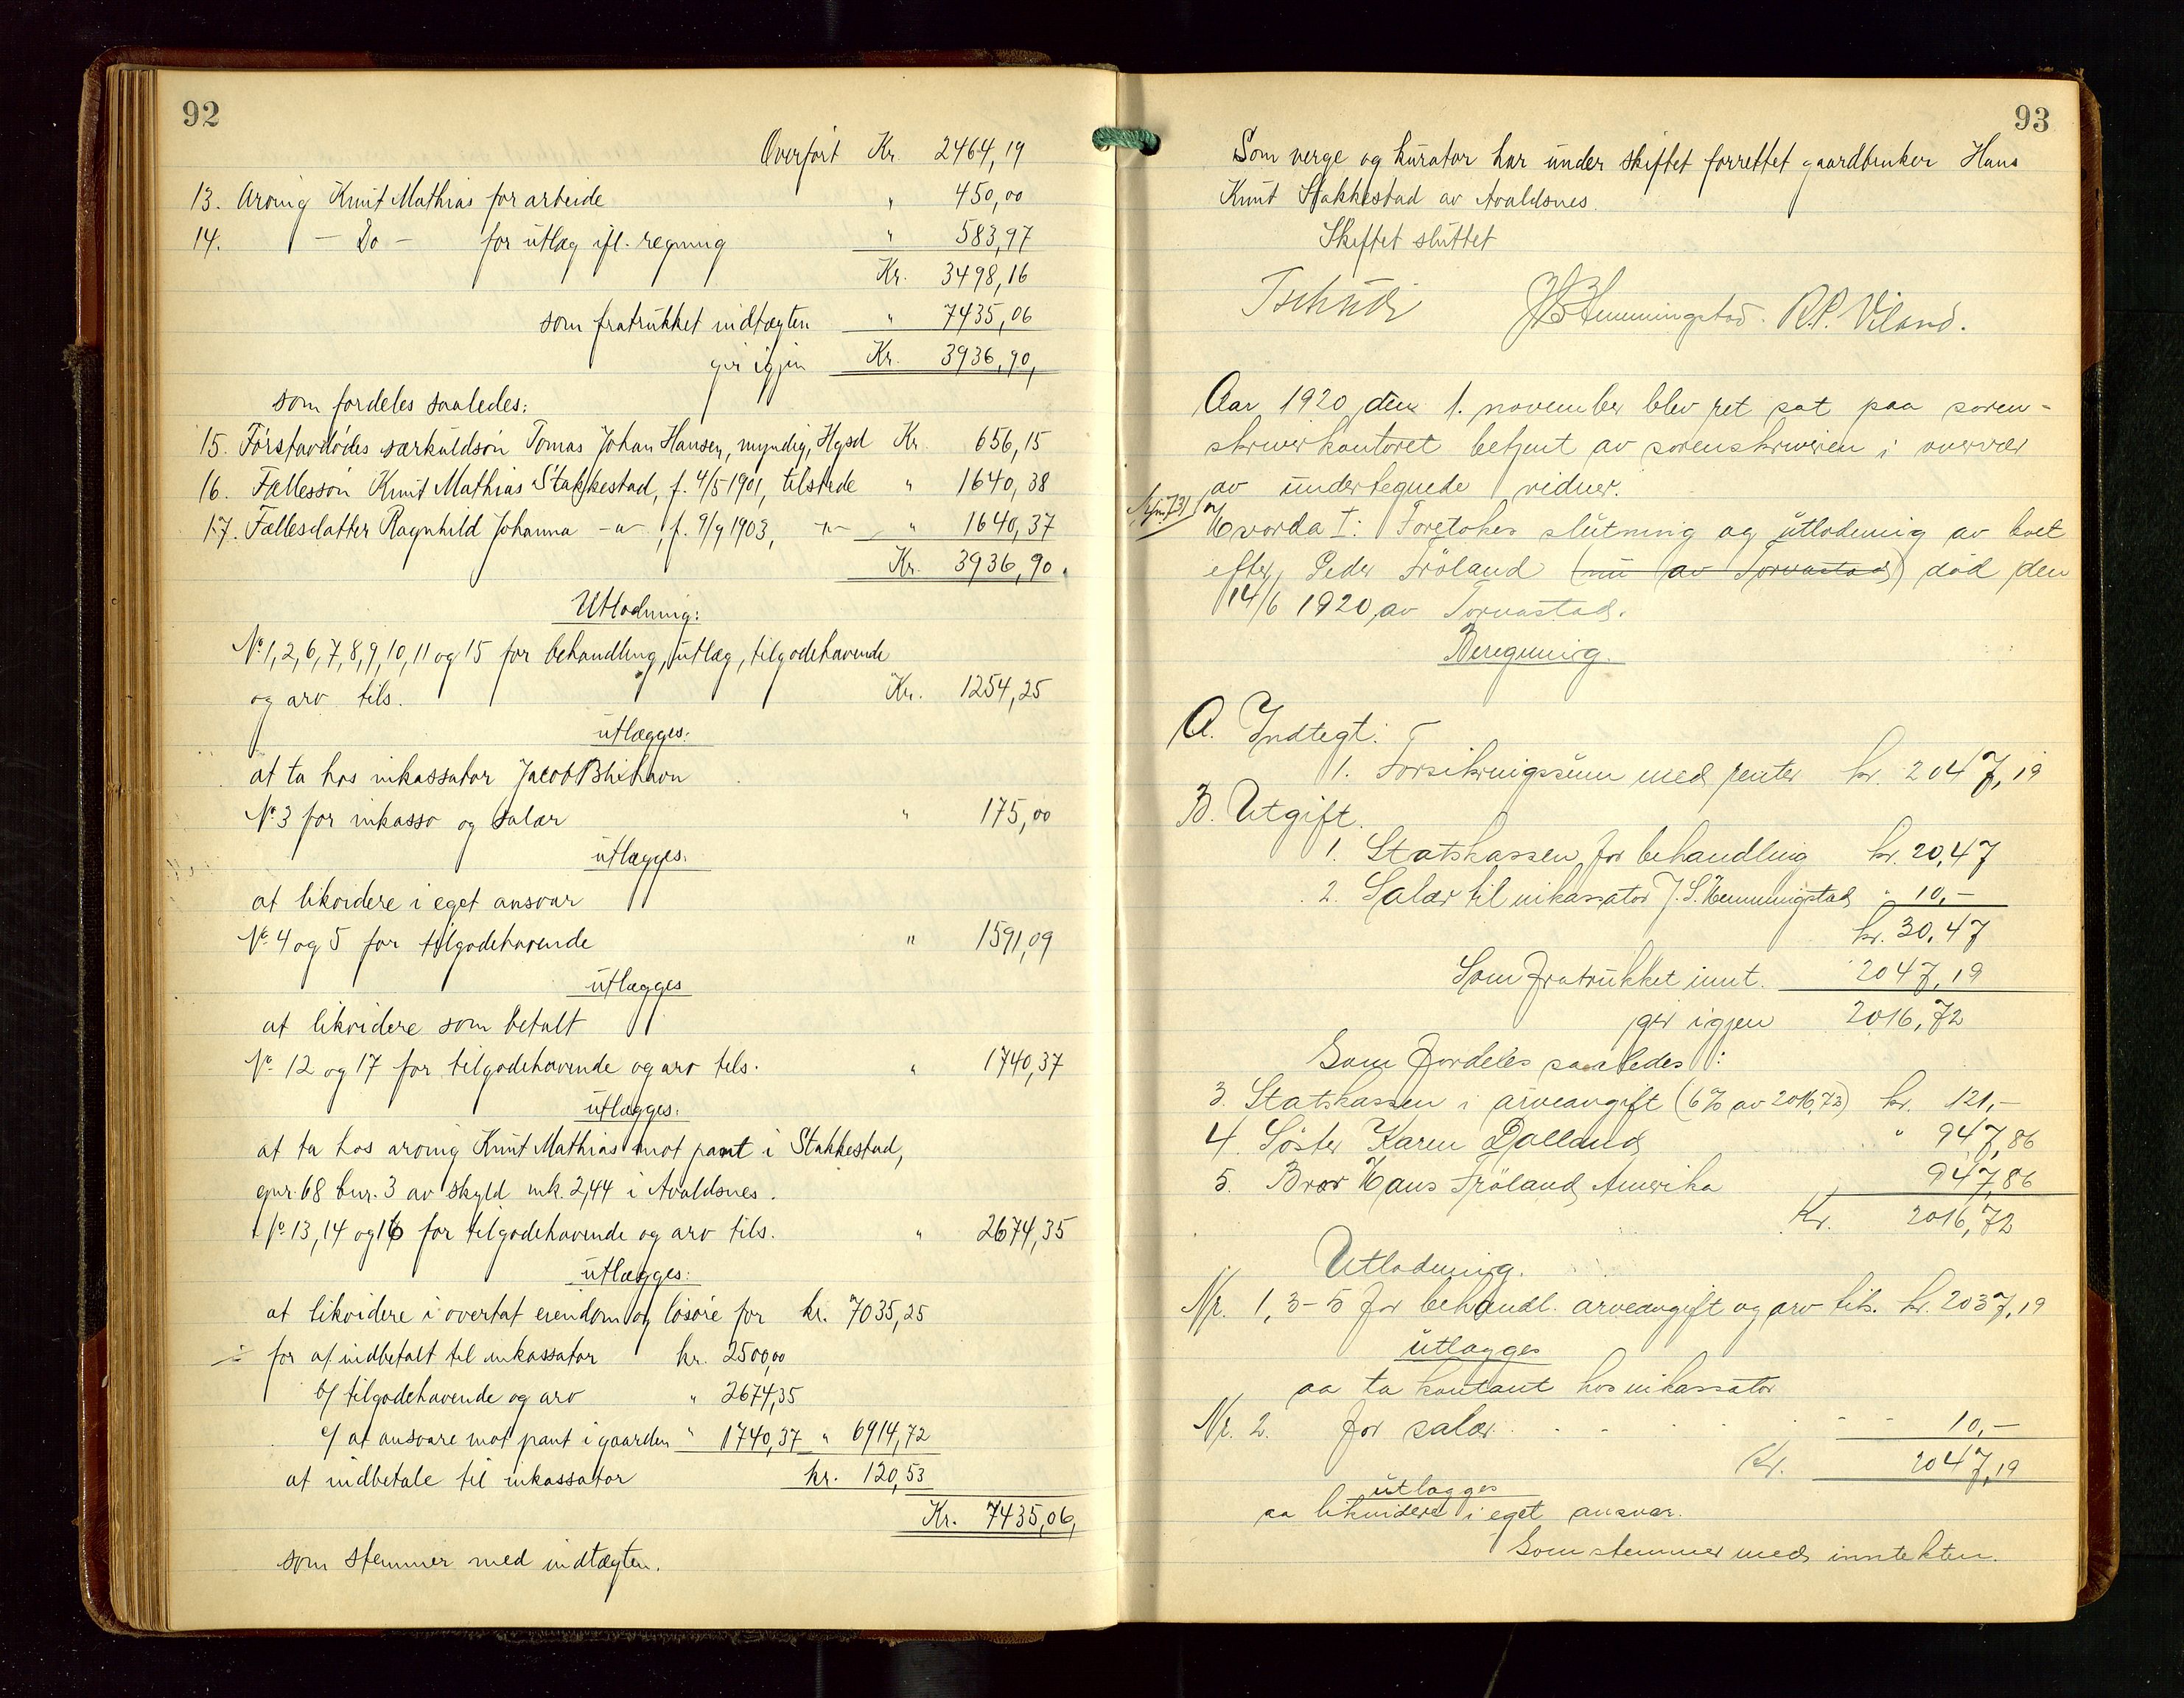 92
Overført Kr. 2464,19
13. Arving Knut Mathias for arbeide " 450,00
14. – Do – for utlæg ifl. regning " 583,97
Kr. 3498,16
som fratrukket indtægten " 7435,06
gir igjen Kr. 3936,90,
som fordeles saaledes:
15. Førstavdødes særkuldsøn Tomas Johan Hansen, myndig, Hgsd Kr. 656,15
16. Fællessøn Knut Mathias Stakkestad, f. 4/5 1901, tilstede " 1640,38
17. Fællesdatter Ragnhild Johanna –"– , f. 9/9 1903, –"– " 1640,37
Kr. 3936,90.
Utlodning:
No. 1, 2, 6, 7, 8, 9, 10, 11 og 15 for behandling, utlæg, tilgodehavende
og arv tils. Kr. 1254,25
utlægges:
at ta hos inkassator Jacob Blikhavn
No. 3 for inkasso og salær " 175,00
utlægges:
at likvidere i eget ansvar
No. 4 og 5 for tilgodehavende " 1591,09
utlægges
at likvidere som betalt
No. 12 og 17 for tilgodehavende og arv tils. " 1740,37
utlægges:
at ta hos arving Knut Mathias mot pant i Stakkestad,
gnr. 68 bnr. 3 av skyld mk. 2,44 i Avaldsnes.
No. 13, 14 og 16 for tilgodehavende og arv tils. " 2674,35
utlægges:
at likvidere i overtat eiendom og løsøre for kr. 7035,25
÷ for a/ indbetalt til inkassator kr. 2500,00
b/ tilgodehavende og arv " 2674,35
c/ at ansvare mot pant i gaarden " 1740,37 " 6914,72
at indbetale til inkassator kr. 120,53
Kr. 7435,06,
som stemmer med indtægten.
93
Som verge og kurator har under skiftet forrettet gaardbruker Hans
Knut Stakkestad av Avaldsnes.
Skiftet sluttet
Tschudi Hemmingstad. R.P. Viland.
Aar 1920 den 1. november blev ret sat paa soren-
skriverkontoret betjent av sorenskriveren i overvær
av undertegnede vidner.
Hvorda I: Foretokes slutning og utlodning av boet
efter Peder Fröland (nu av Torvastad) död den
14/6 1920, av Torvastad.
Beregning.
A. Indtegt:
1. Forsikringssum med renter kr. 2047,19
B. Utgift.
1. Statskassen for behandling kr. 20,47
2. Salær til inkassator J. S. Hemmingstad " 10,–
kr. 30,47
Som fratrukket innt. 2047,19
gir igjen 2016,72
Som fordeles saaledes:
3. Statskassen i arveavgift (6% av 2016,72) kr. 121,–
4. Söster Karen Dolland " 947,86
5. Bror Hans Fröland, Amerika 947,86
Kr. 2016,72
Utlodning.
Nr. 1, 3–5 for behandl. arveavgift og arv tils. kr. 2037,19
utlægges
aa ta kontant hos inkassator
Nr. 2. for salær 10,–
Kr. 2047,19
utlægges
aa likvidere i eget ansvar.
Som stemmer med inntekten.